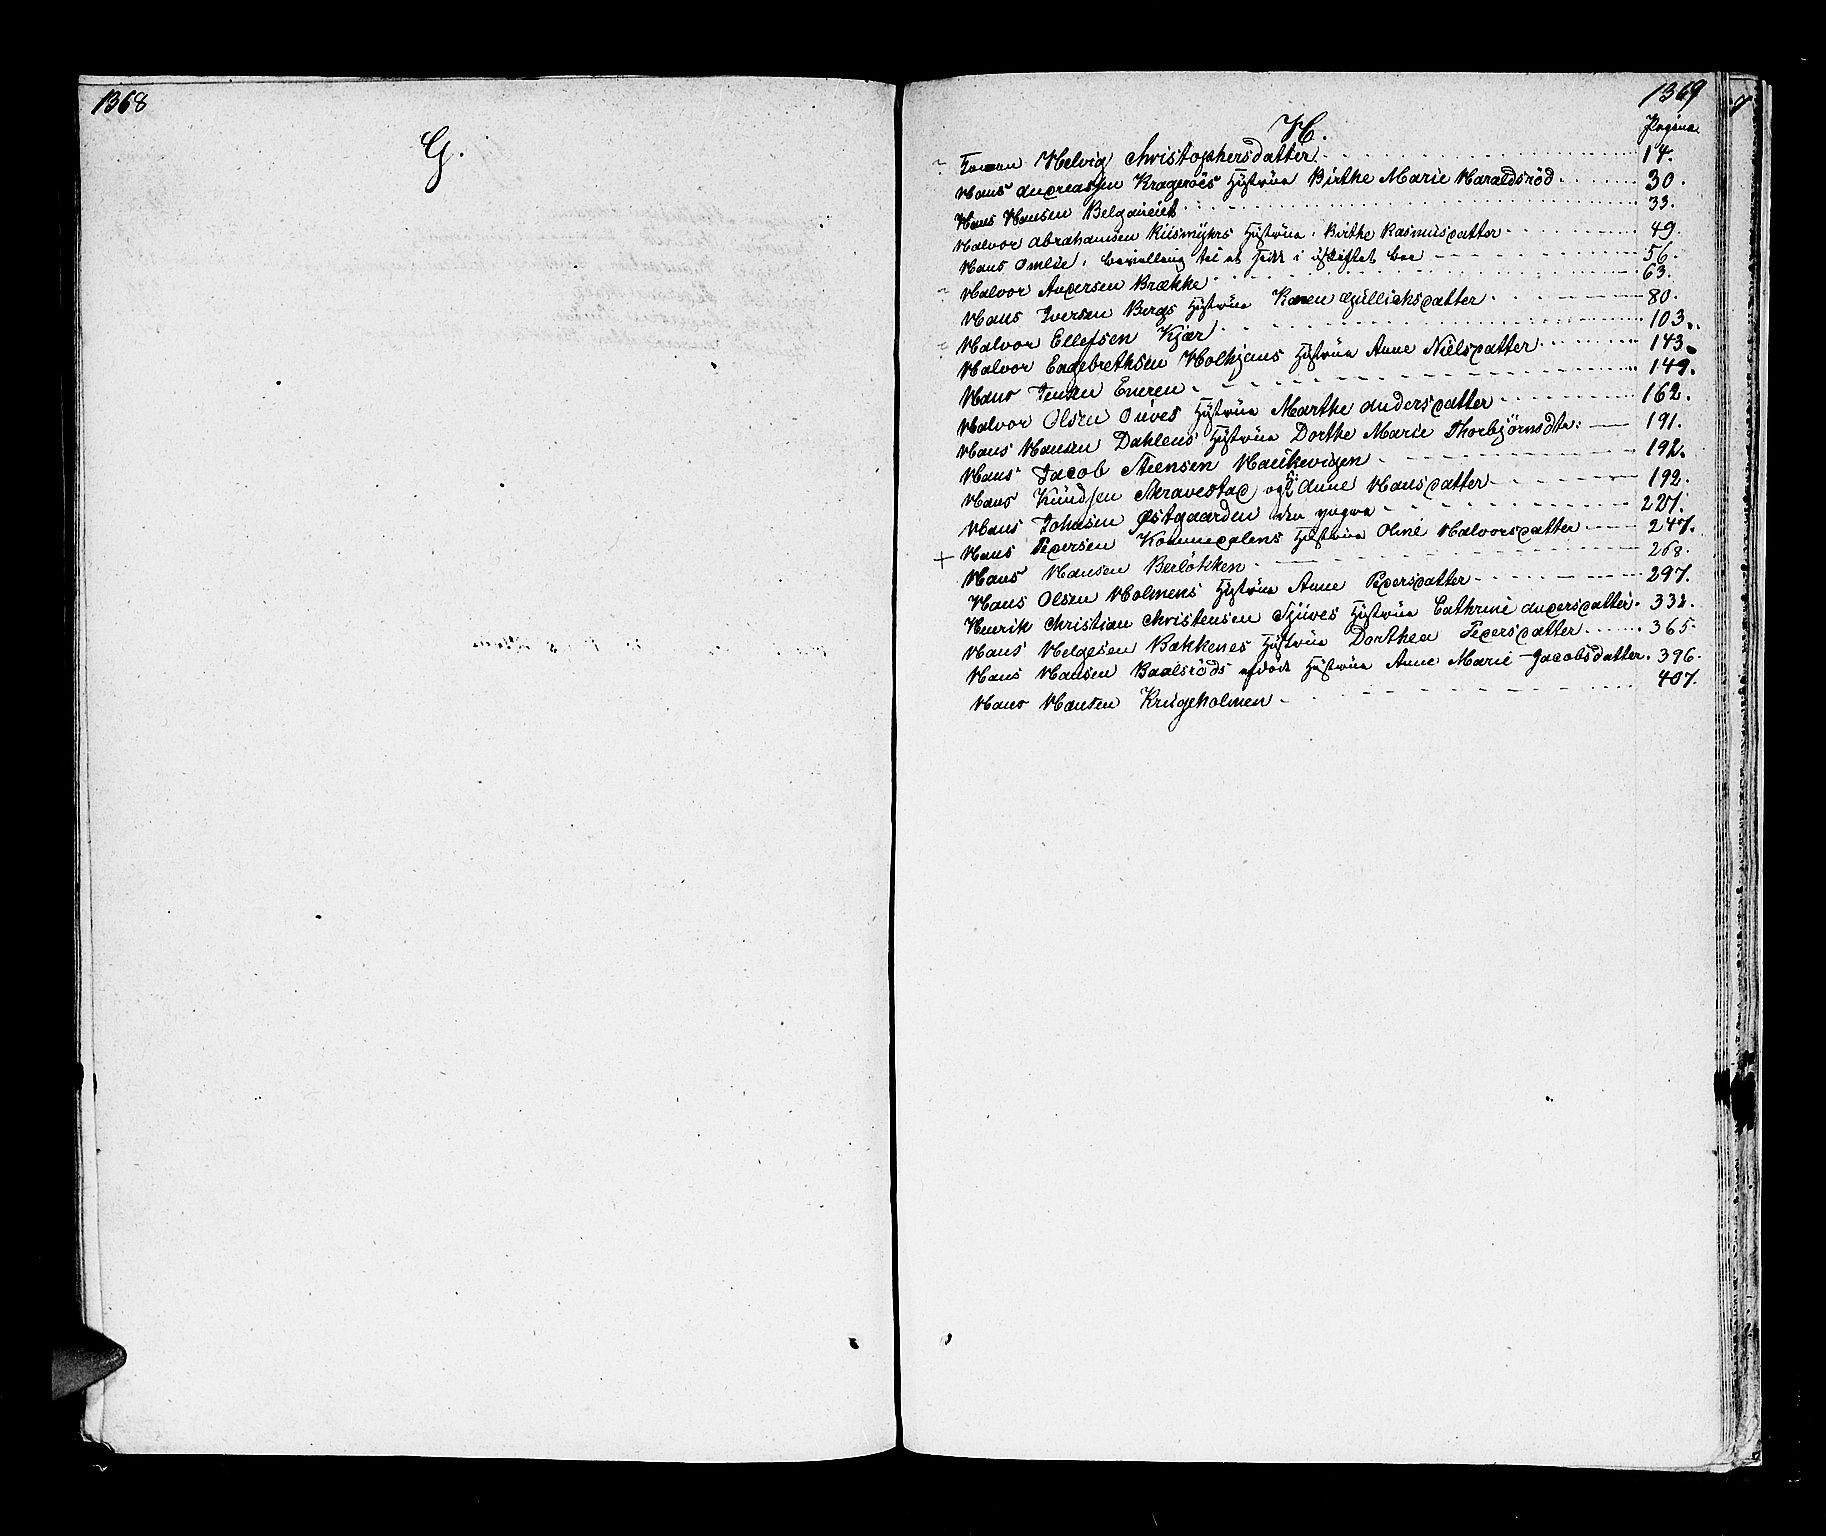 1368
G.
1369
H.
Pagina
Helvig Christophersdatter 14.
Hans Andreassen Kragerøes Hustrüe Birthe Marie Haraldsröd 30.
Hans Hansen Belgaüeiet 33.
Halvor Abrahamsen Riismÿhrs Hustrüe Birthe Rasmüsdatter 49.
Hans Omlie, bevilling til at sidde i uskiftet boe 56.
Halvor Andersen Brække 63.
Hans Iversen Bergs Hustrüe Karen Güllichsdatter 80.
Halvor Ellefsen Kjær 103.
Halvor Engebrethsen Holtijans Hustrüe Anne Nielsdatter 143.
Hans Jensen Eneren 149.
Halvor Olsen Oüves Hustrüe Marthe Andersdatter 162.
Hans Hansen Dahlens Hustrüe Dorthe Marie Thorbjörnsdtr: 191.
Hans Jacob Steensen Haükevigen 192.
Hans Knüdsen Skravestad og Anne Hansdatter 192.
Hans Johnsen Østgaarden den yngre 227.
+ Hans Pedersen Kommedalens Hustrüe Oline Halvorsdatter 247.
Hans Hansen Berlökken 268.
Hans Olsen Holmens Hustrüe Anne Pedersdatter 297.
Henrik Christian Christensen Tjüves Hustrüe Cathrine Andersdatter 338.
Hans Helgesen Bakkenes Hustrüe Dorthea Pedersdatter 365.
Hans Hansen Baalsröds afdöde Hustrüe Anne Marie Jacobsdatter. 396.
Hans Hansen Krügeholmen 407.